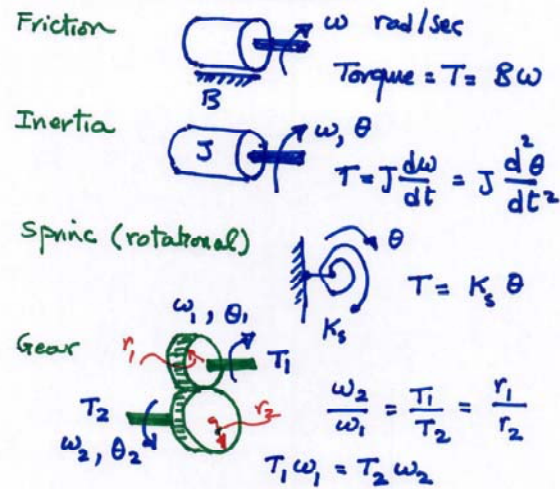 Friction
ω rad/sec
B
Torque = T = Bω
Inertia
J
ω, θ
T = J dω/dt = J d²θ/dt²
Sprinc (rotational)
θ
Ks
T = Ks θ
Gear
ω₁, θ₁
r₁
T₁
T₂
r₂
ω₂, θ₂
ω₂/ω₁ = T₁/T₂ = r₁/r₂
T₁ω₁ = T₂ω₂